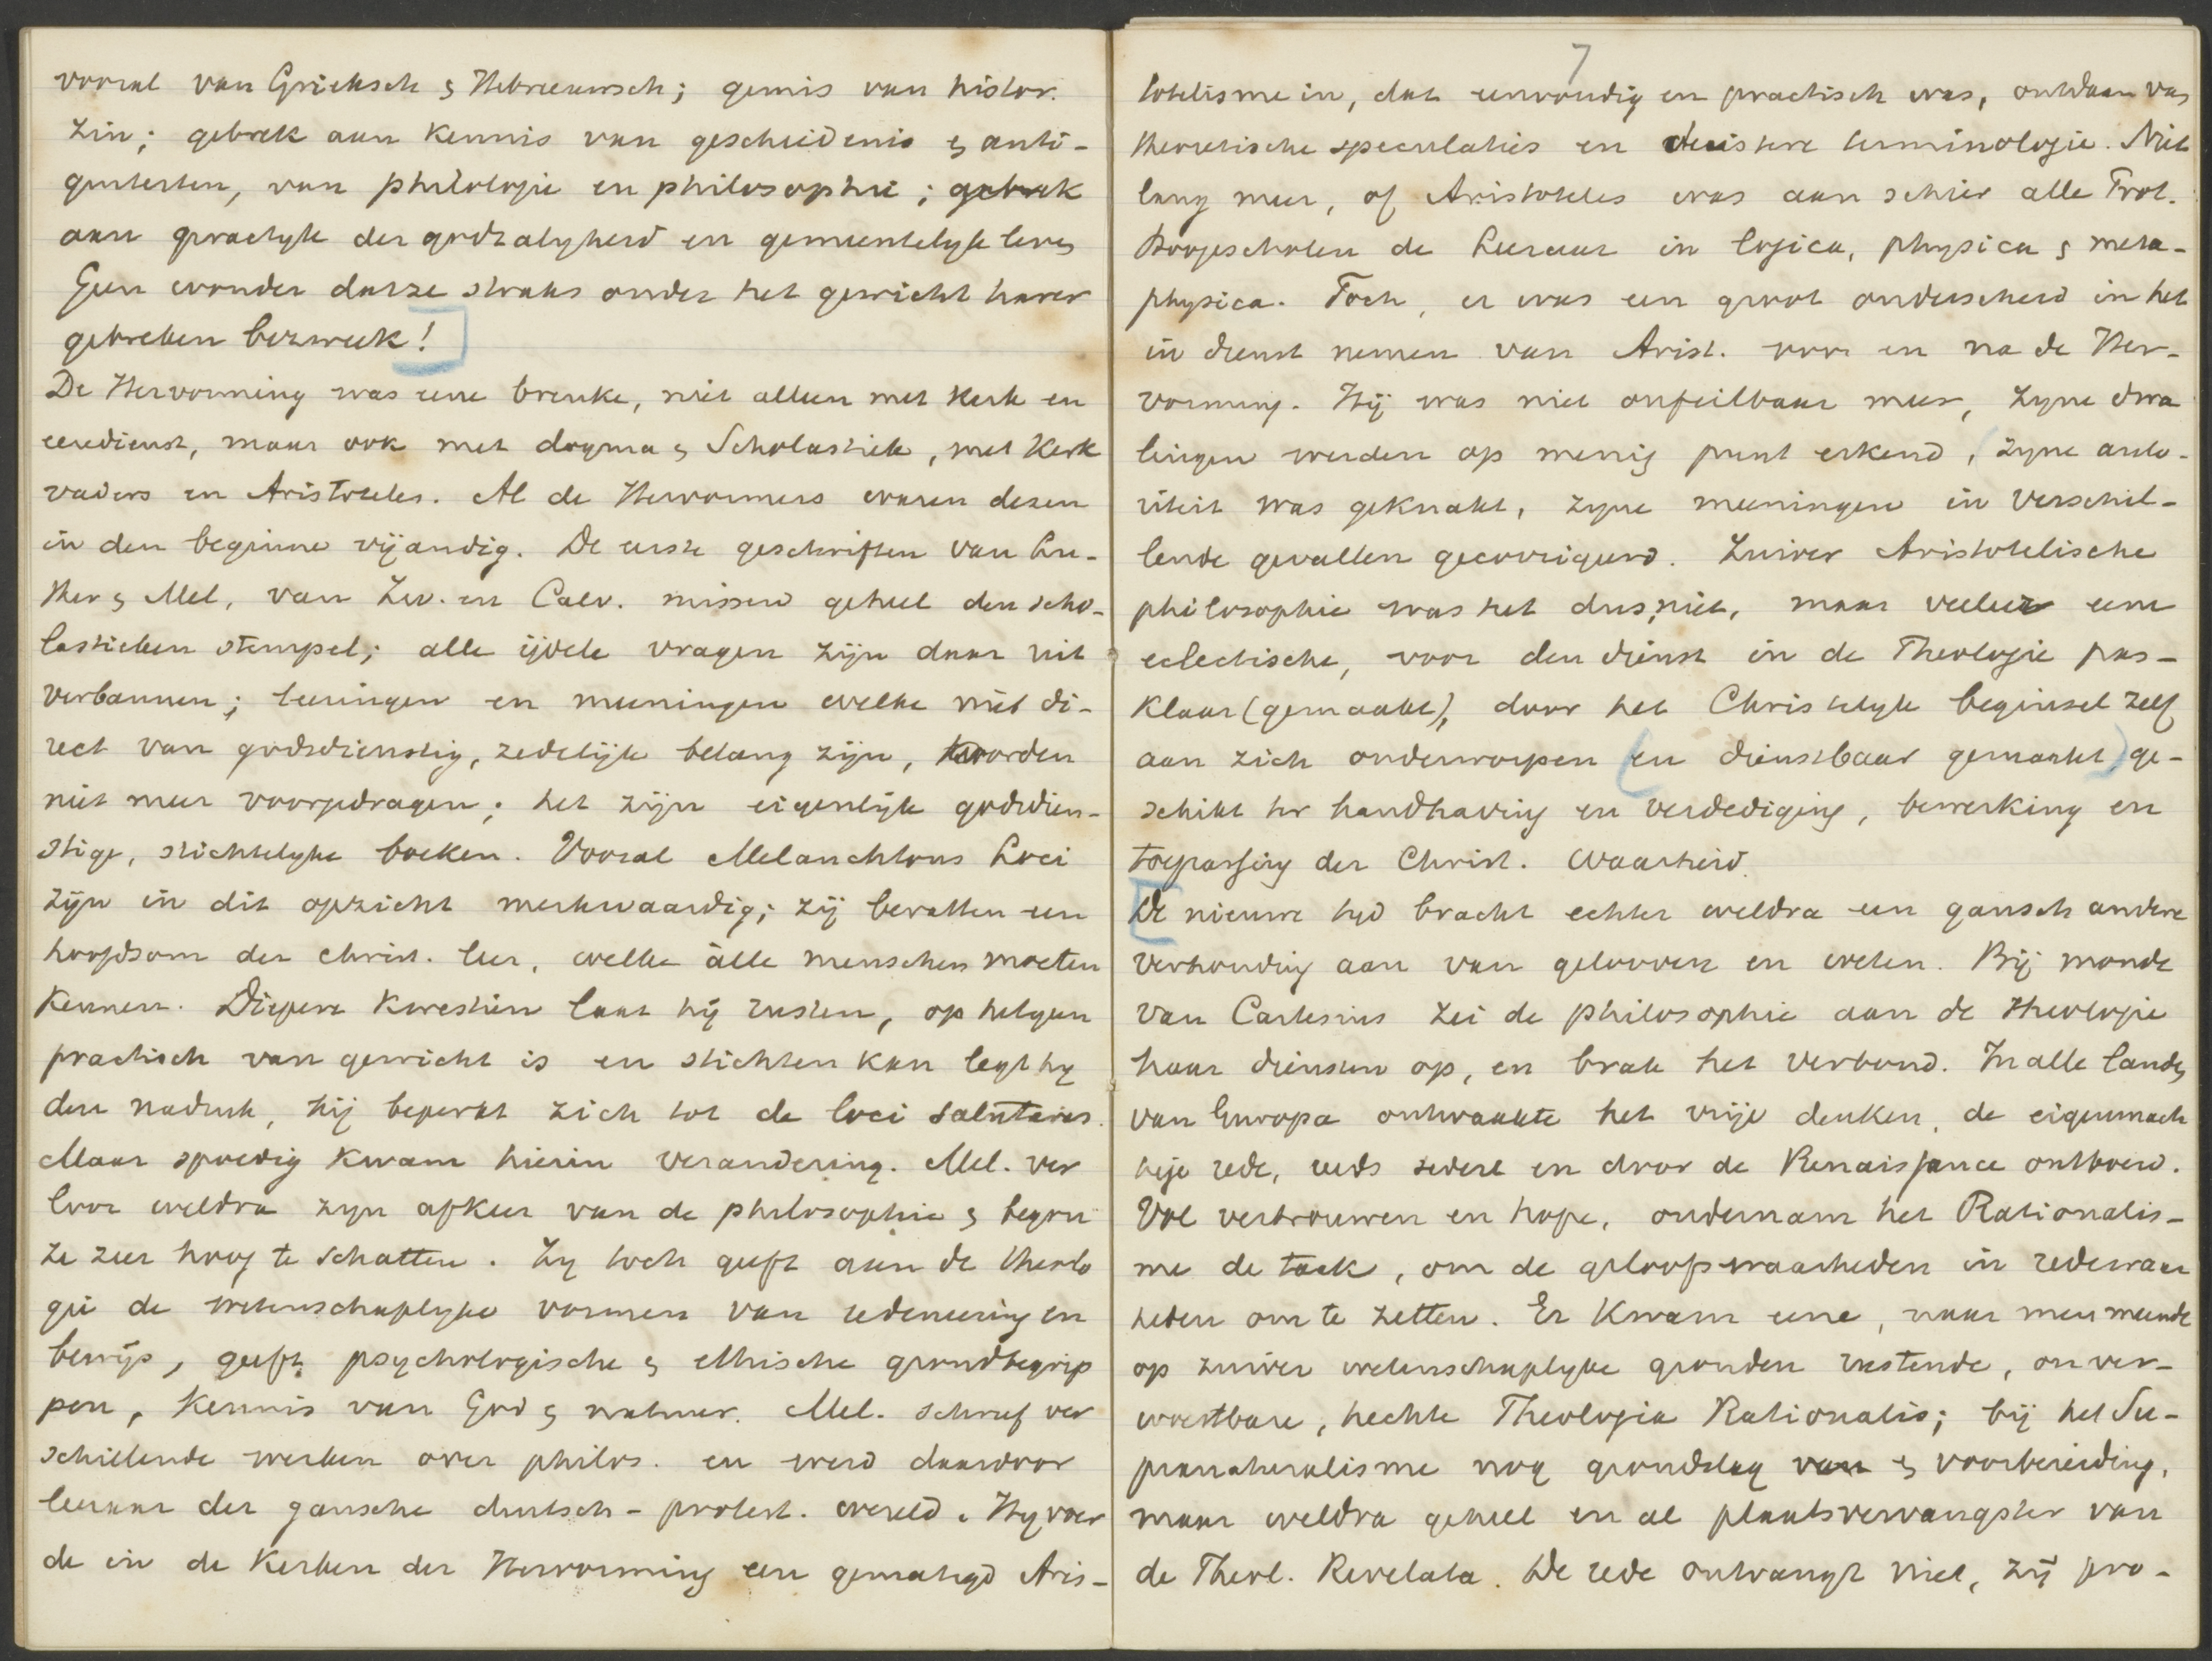 vooral van Grieksch & Hebreeuwsch; gemis van histor.
zin; gebrek aan kennis van geschiedenis & anti-
quiteiten, van philologie en philosophie; gebrek
aan practyk der godzalyheid en gemeentelyk leven
Geen wonder dat ze straks onder het gewicht harer
gebreken bezweek!
De Hervorming was eene breuke, niet alleen met kerk en
eeredienst, maar ook met dogma & Scholastiek, met kerk
vaders en Aristoteles. Al de Hervormers waren dezen
in den beginne vijandig. De eerste geschriften van Lu-
ther & Mel, van Zw. en Calv. missen geheel den scho-
lastieken stempel; alle ijdele vragen zijn daar uit
verbannen; leeringen en meeningen welke niet di-
rect van godsdienstig, zedelijk belang zijn, worden
niet meer voorgedragen; het zijn eigenlijk godsdien-
stige, stichtelyke boeken. Vooral Melanchtons Loci
zijn in dit opzicht merkwaardig; zij bevatten een
hoofdsom der christ. leer, welke álle menschen moeten
kennen. Diepere kwestien laat hij rusten, op hetgeen
practisch van gewicht is en stichten kan legt hy
den nadruk, hij beperkt zich tot de loci salutares.
Maar spoedig kwam hierin verandering. Mel. ver
loor weldra zyn afkeer van de philosophie & begon
ze zeer hoog te schatten. Zy toch geeft aan de theolo
gie de wetenschaplyke vormen van redeneering en
bewijs, geeft psychologische & ethische grondbegrip
pen, kennis van God & natuur. Mel. schreef ver
schillende werken over philos. en werd daardoor
leeraar der gansche duitsch-protest. wereld. Hy voer
de in de kerken der Hervorming een gematigd Aris-
7
totelisme in, dat eenvoudig en practisch was, ontdaan van
theoretische speculaties en duistere terminologie. Niet
lang meer, of Aristoteles was aan schier alle Prot.
Hoogescholen de Leeraar in logica, physica & meta-
physica. Toch, er was een groot onderscheid in het
in dienst nemen van Arist. voor en na de Her-
vorming. Hij was niet onfeilbaar meer, zyne dwa
lingen werden op menig punt erkend, (zyne auto-
riteit was geknakt, zyne meeningen in verschil-
lende gevallen gecorrigeerd. Zuiver Aristotelische
philosophie was het dus niet, maar veeleer eene
eclectische, voor den dienst in de Theologie pas-
klaar (gemaakt), door het Christelyk beginsel zelf
aan zich onderworpen (en dienstbaar gemaakt) ge-
schikt ter handhaving en verdediging, bewerking en
toepassing der Christ. Waarheid.
De nieuwe tyd bracht echter weldra een gansch andere
verhouding aan van gelooven en weten. Bij monde
van Cartesius zei de philosophie aan de theologie
haar diensten op, en brak het verbond. In alle landen
van Europa ontwaakte het vrije denken, de eigenmach
tige rede, reeds sedert en door de Renaissance ontboeid.
Vol vertrouwen en hope, ondernam het Rationalis-
me de taak, om de geloofswaarheden in redewaar
heden om te zetten. Er kwam eene, naar men meende
op zuiver wetenschaplyke gronden rustende, onver-
woestbare, hechte Theologia Rationalis; bij het Su-
pranaturalisme nog grondslag van & voorbereiding,
maar weldra geheel en al plaatsvervangster van
de Theol. Revelata. De rede ontvangt niet, zij pro-